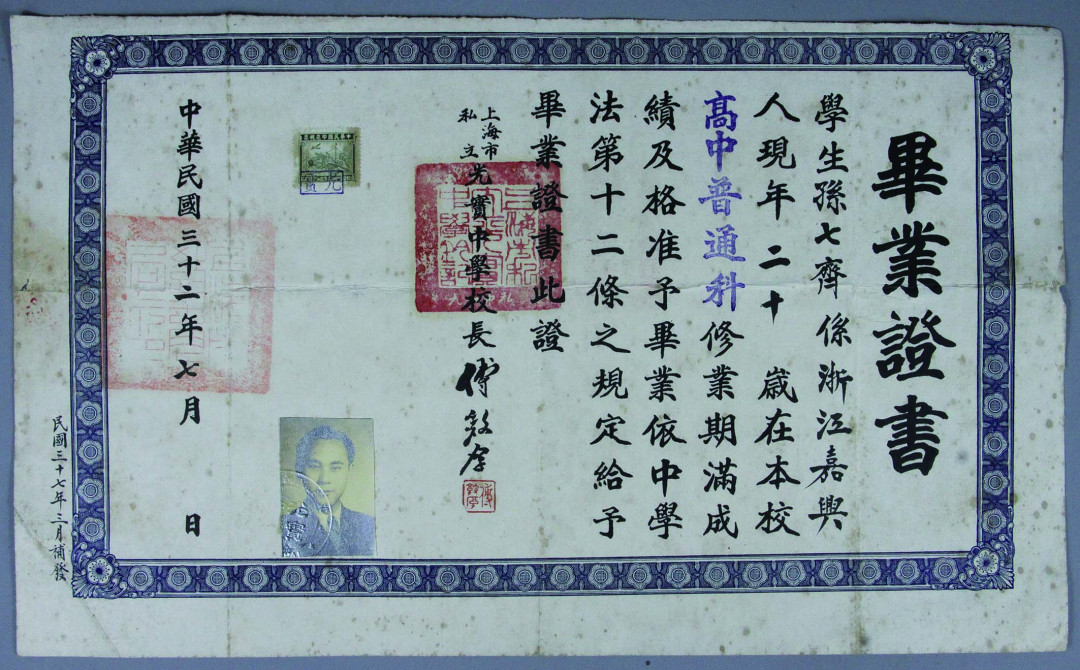 畢業證書
學生孫七齊係浙江嘉興
人現年二十歲在本校
高中普通科修業期滿成
績及格准予畢業依中學
法第十二條之規定給予
畢業證書此證
上海市
私立
光實中學校長
中華民國三十二年七月 日
民國三十七年三月補發